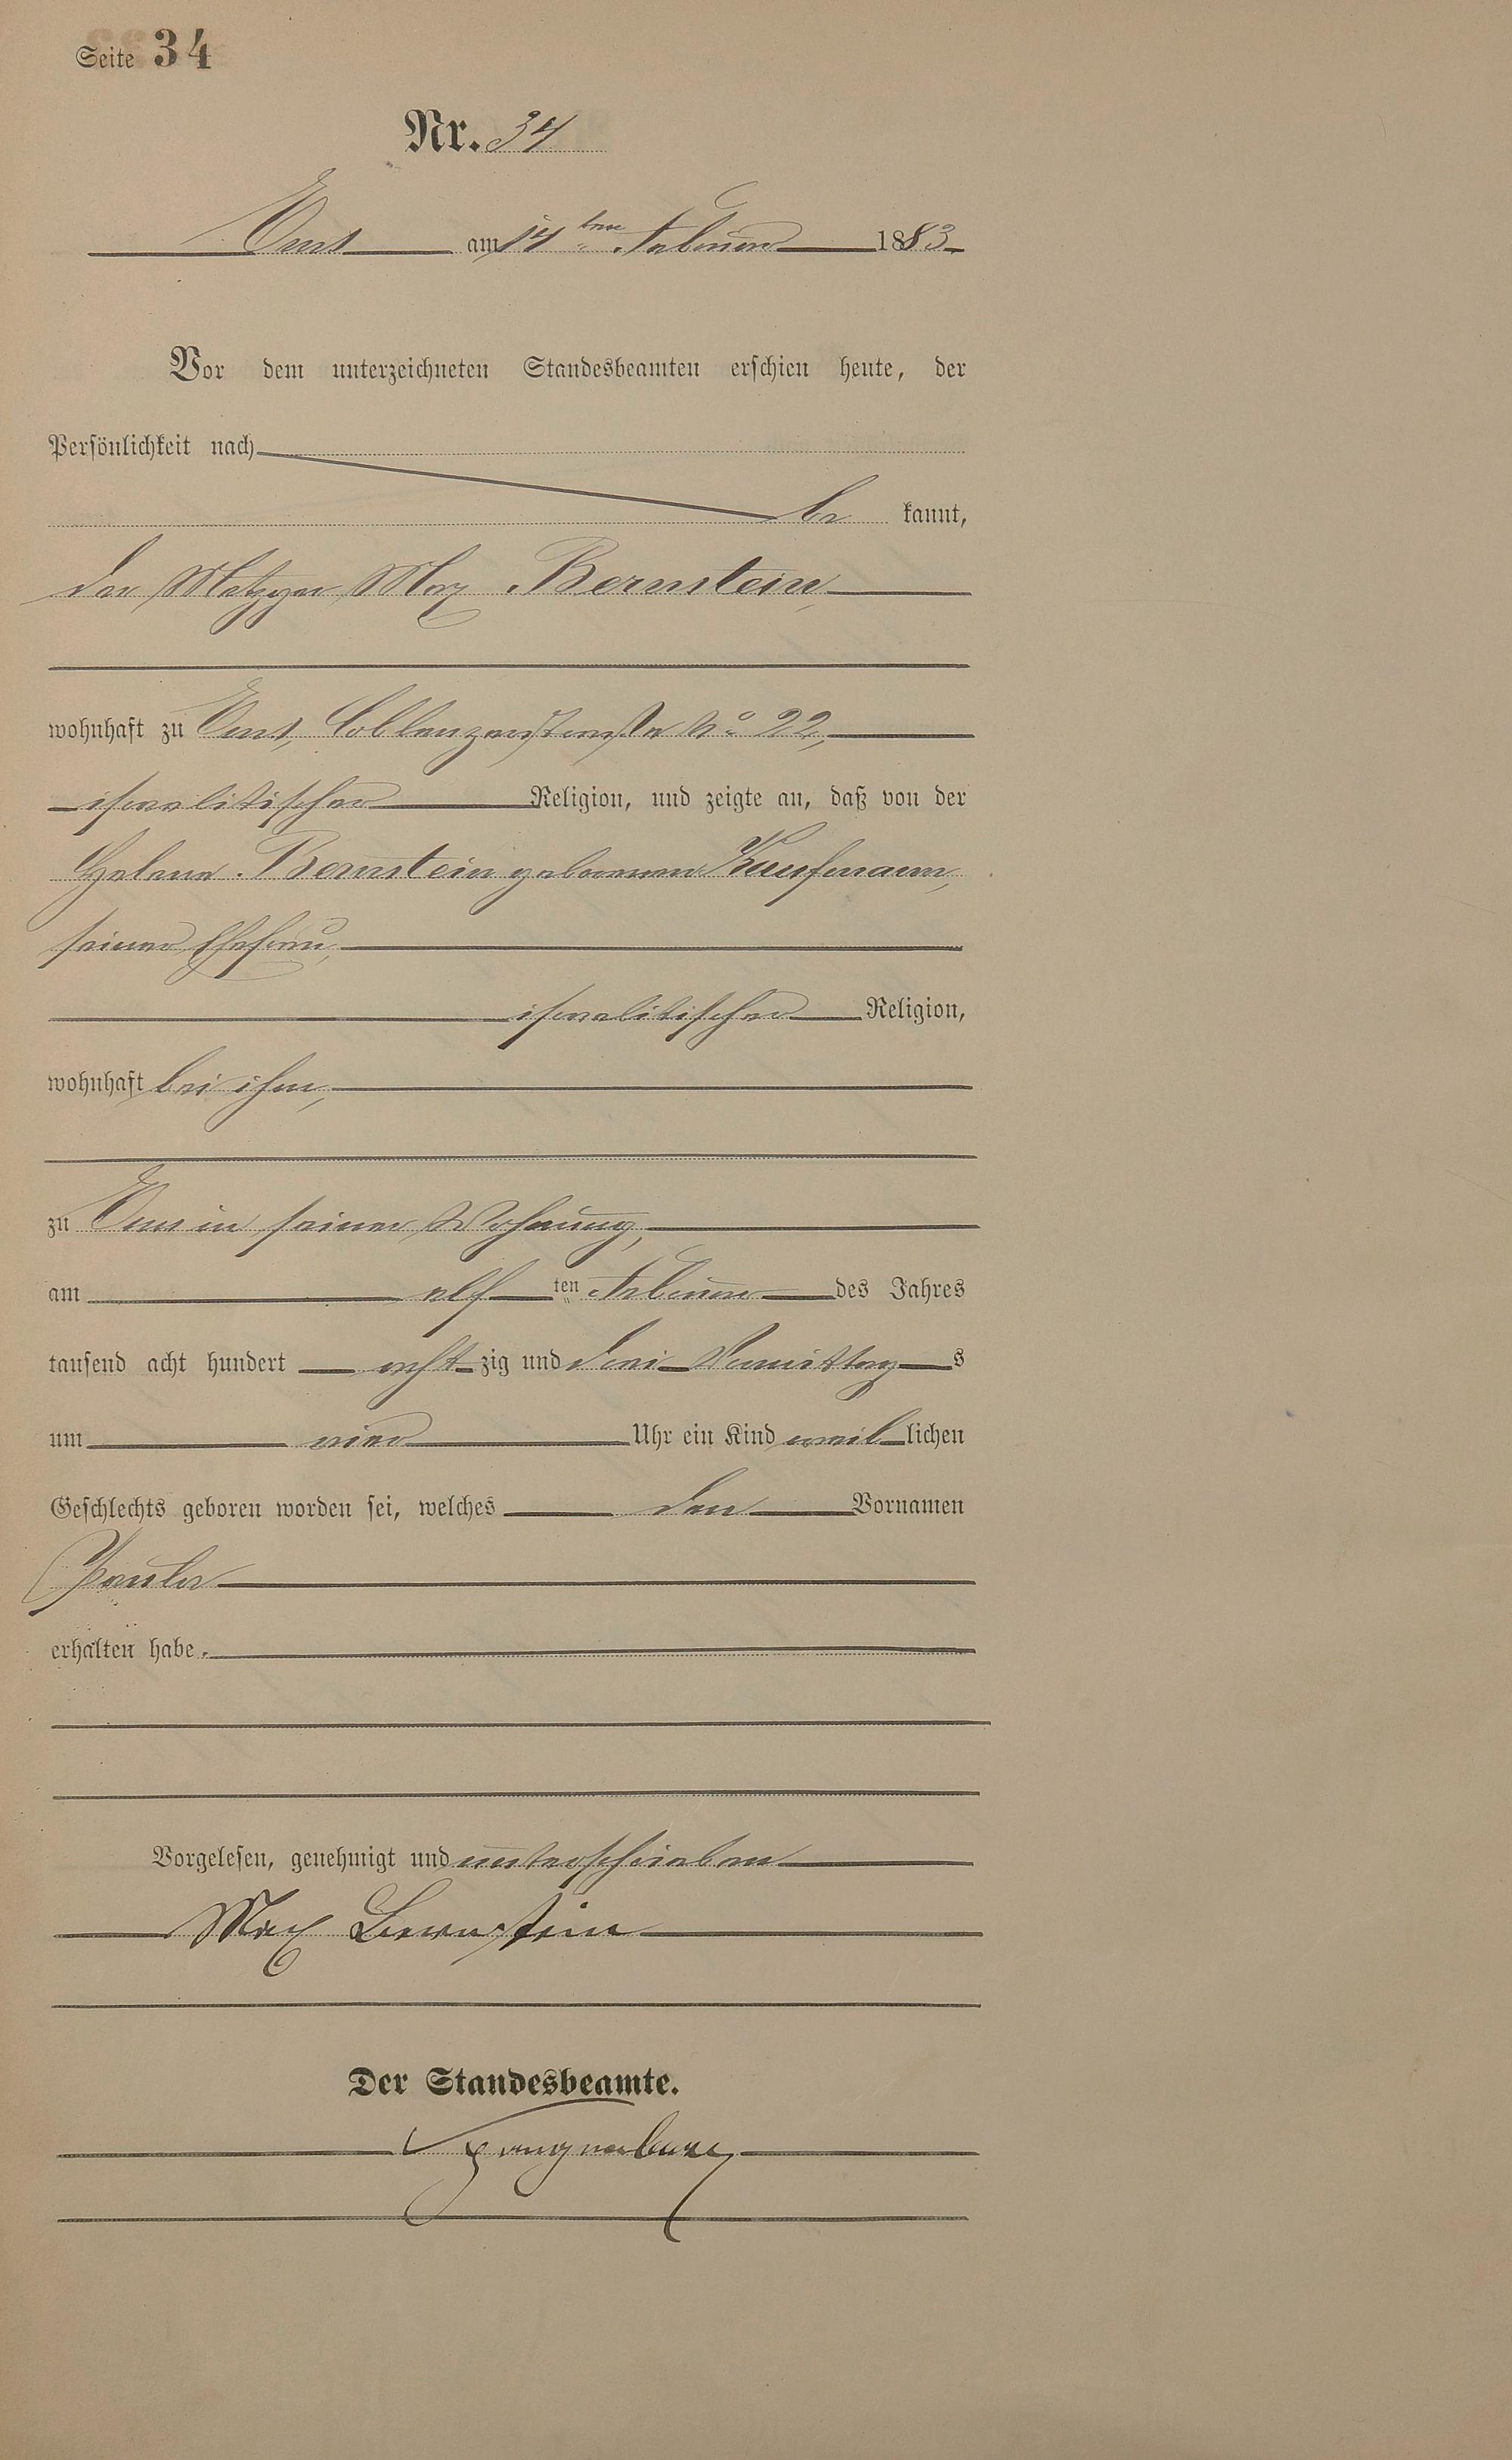 Seite 34
Nr. 34
Ems am 14ten Februar 1883
Vor dem unterzeichneten Standesbeamten erschien heute, der
Persönlichkeit nach
be kannt,
der Metzger Max Bernstein,
wohnhaft zu Ems, Coblenzerstraße No 22,
israelitischer Religion, und zeigte an, daß von der
Helene Bernstein geborenen Kaufmann,
seiner Ehefrau,
israelitischer Religion,
wohnhaft bei ihm,
zu Ems in seiner Wohnung,
am elf ten Februar des Jahres
tausend acht hundert acht zig und drei Vormittag s
um vier Uhr ein Kind weib lichen
Geschlechts geboren worden sei, welches den Vornamen
Paula
erhalten habe.
Vorgelesen, genehmigt und unterschrieben
Max Bernstein
Der Standesbeamte.